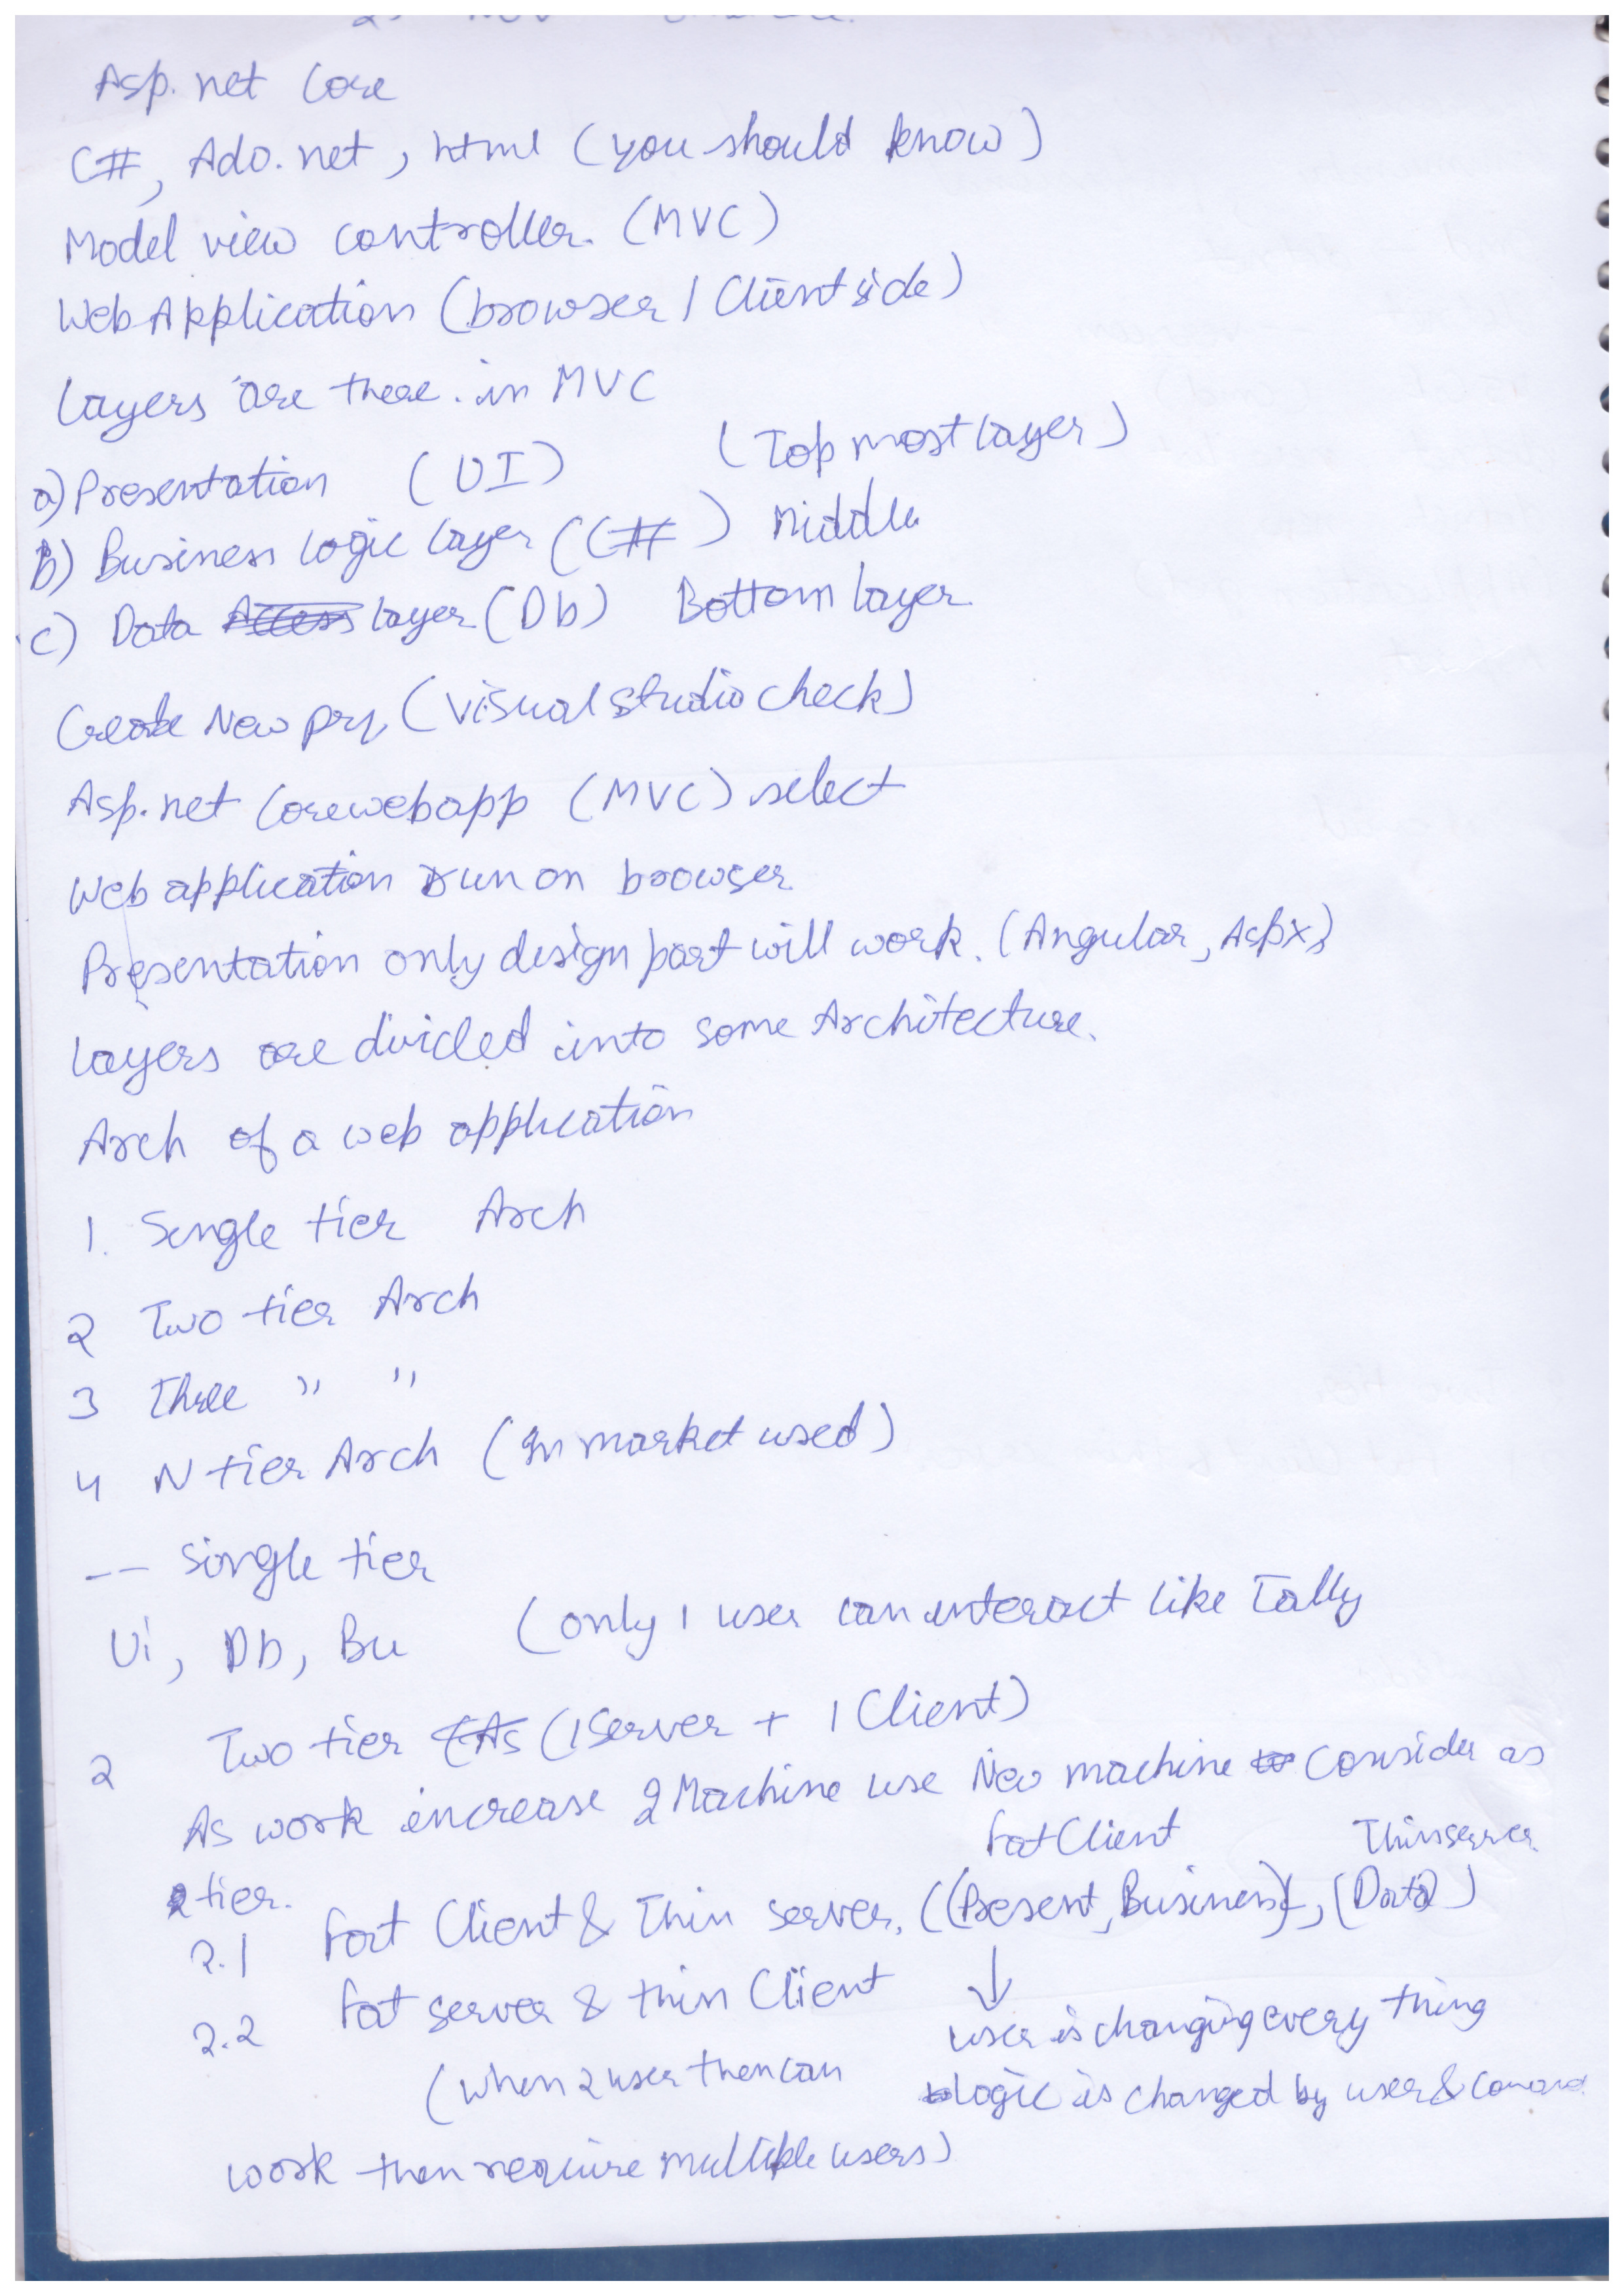 Asp.net Core
C#, Ado.net, html (you should know)
Model view controller. (MVC)
Web Application (browser / Client side)
Layers are there. in MVC
a) Presentation (UI) (Top most layer)
b) Business logic layer (C#) Middle
c) Data layer (Db) Bottom layer
Create New prj (visual studio check)
Asp.net Core web app (MVC) select
Web application run on browser
Presentation only design part will work. (Angular, Aspx)
Layers are divided into some Architecture.
Arch of a web application
1. Single tier Arch
2 Two tier Arch
3 Three " "
4 N tier Arch (In market used)
-- single tier
Ui, Db, Bu (only 1 user can interact like Tally
2 Two tier (1 Server + 1 Client)
As work increase 2 Machine use New machine consider as
fat Client Thin server
2 tier.
2.1 fat Client & Thin server, ((Present, Business), (Data))
2.2 fat server & thin Client
user is changing every thing
(when 2 user then can
logic is changed by user &
work then require multiple users)